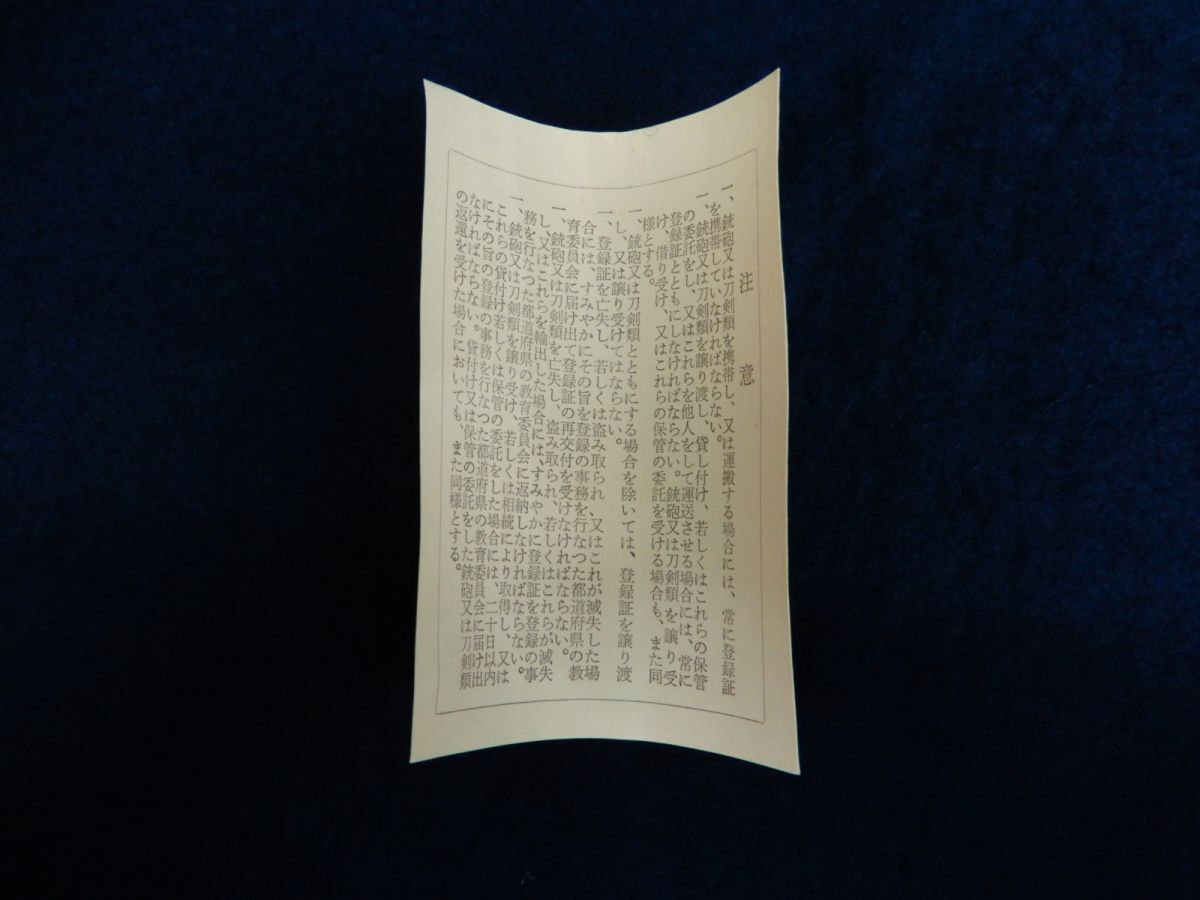 注意
一、銃砲又は刀剣類を携帯し、又は運搬する場合には、常に登録証
を携帯していなければならない。
一、銃砲又は刀剣類を譲り渡し、貸し付け、若しくはこれらの保管
の委託をし、又はこれらを他人をして運送させる場合には、常に
登録証とともにしなければならない。銃砲又は刀剣類を譲り受
け、借り受け、又はこれらの保管の委託を受ける場合も、また同
様とする。
一、銃砲又は刀剣類とともにする場合を除いては、登録証を譲り渡
し、又は譲り受けてはならない。
一、登録証を亡失し、若しくは盗み取られ、又はこれが滅失した場
合には、すみやかにその旨を登録の事務を行なつた都道府県の教
育委員会に届け出て登録証の再交付を受けなければならない。
一、銃砲又は刀剣類を亡失し、盗み取られ、若しくはこれらが滅失
し、又はこれらを輸出した場合には、すみやかに登録証を登録の事
務を行なつた都道府県の教育委員会に返納しなければならない。
一、銃砲又は刀剣類を譲り受け、若しくは相続により取得し、又は
これらの貸付け若しくは保管の委託をした場合には、二十日以内
にその旨の登録の事務を行なつた都道府県の教育委員会に届け出
なければならない。貸付け又は保管の委託をした銃砲又は刀剣類
の返還を受けた場合においても、また同様とする。